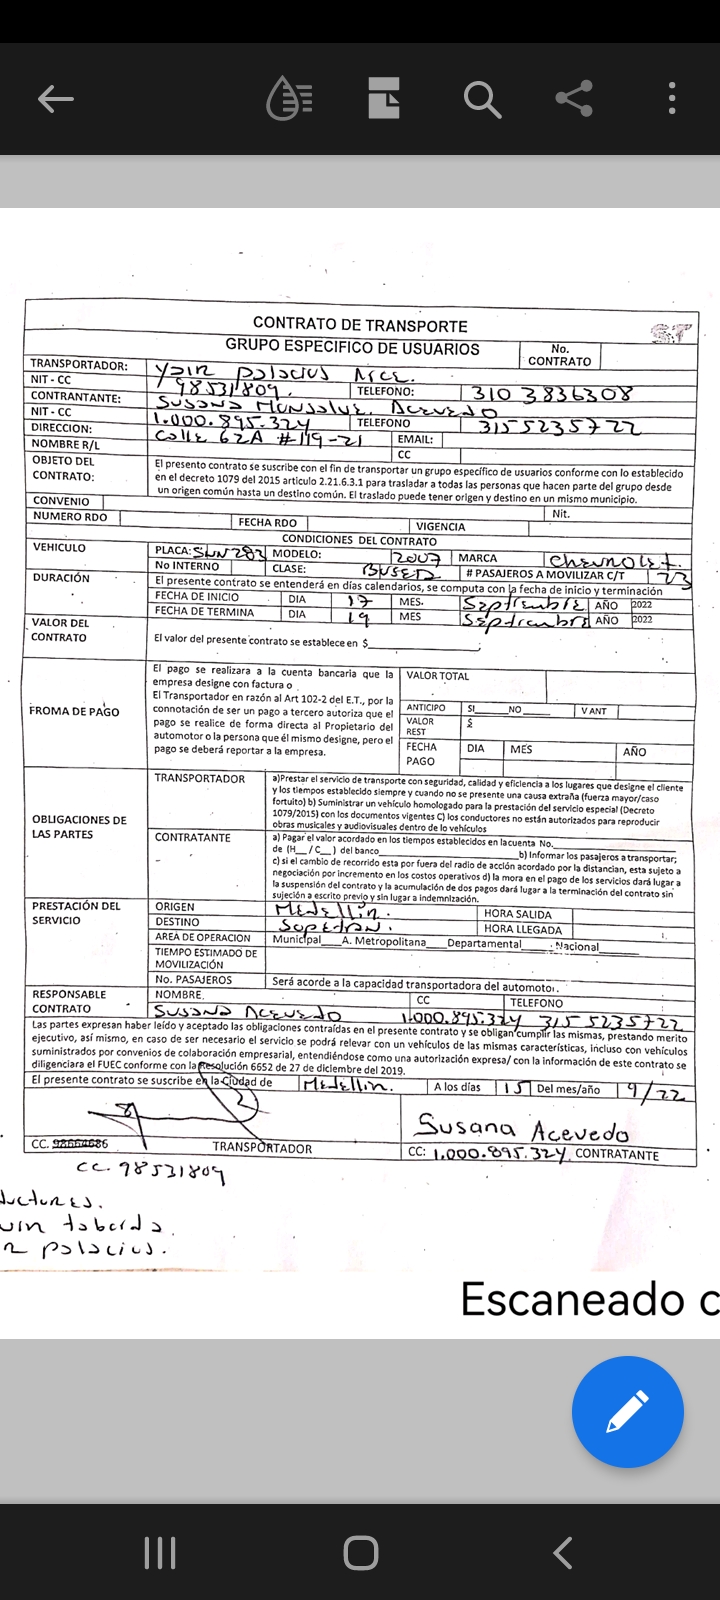 CONTRATO DE TRANSPORTE
S.T
GRUPO ESPECIFICO DE USUARIOS No. CONTRATO
TRANSPORTADOR: Yair Palacius Arce.
NIT - CC 98531809. TELEFONO: 310 3836308
CONTRANTANTE: Susana Monsalve Acevedo
NIT - CC 1.000.895.324 TELEFONO 3155235722
DIRECCION: Calle 62A #119-21 EMAIL:
NOMBRE R/L CC
OBJETO DEL CONTRATO: El presento contrato se suscribe con el fin de transportar un grupo específico de usuarios conforme con lo establecido
en el decreto 1079 del 2015 articulo 2.21.6.3.1 para trasladar a todas las personas que hacen parte del grupo desde
un origen común hasta un destino común. El traslado puede tener origen y destino en un mismo municipio.
CONVENIO Nit.
NUMERO RDO FECHA RDO VIGENCIA
CONDICIONES DEL CONTRATO
VEHICULO PLACA: SNN283 MODELO: 2007 MARCA Chevrolet.
No INTERNO CLASE: BUSETA # PASAJEROS A MOVILIZAR C/T 23
DURACIÓN El presente contrato se entenderá en días calendarios, se computa con la fecha de inicio y terminación
FECHA DE INICIO DIA 17 MES. Septiembre AÑO 2022
FECHA DE TERMINA DIA 19 MES Septiembre AÑO 2022
VALOR DEL CONTRATO El valor del presente contrato se establece en $
FROMA DE PAGO El pago se realizara a la cuenta bancaria que la
empresa designe con factura o
El Transportador en razón al Art 102-2 del E.T., por la
connotación de ser un pago a tercero autoriza que el
pago se realice de forma directa al Propietario del
automotor o la persona que él mismo designe, pero el
pago se deberá reportar a la empresa.
VALOR TOTAL
ANTICIPO SI____NO____ V ANT
VALOR REST $
FECHA PAGO DIA MES AÑO
OBLIGACIONES DE LAS PARTES
TRANSPORTADOR a)Prestar el servicio de transporte con seguridad, calidad y eficiencia a los lugares que designe el cliente
y los tiempos establecido siempre y cuando no se presente una causa extraña (fuerza mayor/caso
fortuito) b) Suministrar un vehículo homologado para la prestación del servicio especial (Decreto
1079/2015) con los documentos vigentes C) los conductores no están autorizados para reproducir
obras musicales y audiovisuales dentro de lo vehículos
CONTRATANTE a) Pagar el valor acordado en los tiempos establecidos en la cuenta No.
de (H__/C__) del banco____ b) Informar los pasajeros a transportar;
c) si el cambio de recorrido esta por fuera del radio de acción acordado por la distancian, esta sujeto a
negociación por incremento en los costos operativos d) la mora en el pago de los servicios dará lugar a
la suspensión del contrato y la acumulación de dos pagos dará lugar a la terminación del contrato sin
sujeción a escrito previo y sin lugar a indemnización.
PRESTACIÓN DEL SERVICIO
ORIGEN Medellin. HORA SALIDA
DESTINO Sopetran. HORA LLEGADA
AREA DE OPERACION Municipal____A. Metropolitana____Departamental____Nacional____
TIEMPO ESTIMADO DE MOVILIZACIÓN
No. PASAJEROS Será acorde a la capacidad transportadora del automotor.
RESPONSABLE CONTRATO NOMBRE CC TELEFONO
Susana Acevedo 1.000.895.324 315 5235722
Las partes expresan haber leído y aceptado las obligaciones contraídas en el presente contrato y se obligan cumplir las mismas, prestando merito
ejecutivo, así mismo, en caso de ser necesario el servicio se podrá relevar con un vehículos de las mismas características, incluso con vehículos
suministrados por convenios de colaboración empresarial, entendiéndose como una autorización expresa/ con la información de este contrato se
diligenciara el FUEC conforme con la Resolución 6652 de 27 de diciembre del 2019.
El presente contrato se suscribe en la Ciudad de Medellin. A los días 15 Del mes/año 9/22
Susana Acevedo
CC. 98664686 TRANSPORTADOR CC: 1.000.895.324 CONTRATANTE
CC. 98531809
ductores.
uin taborda.
r palacius.
Escaneado c